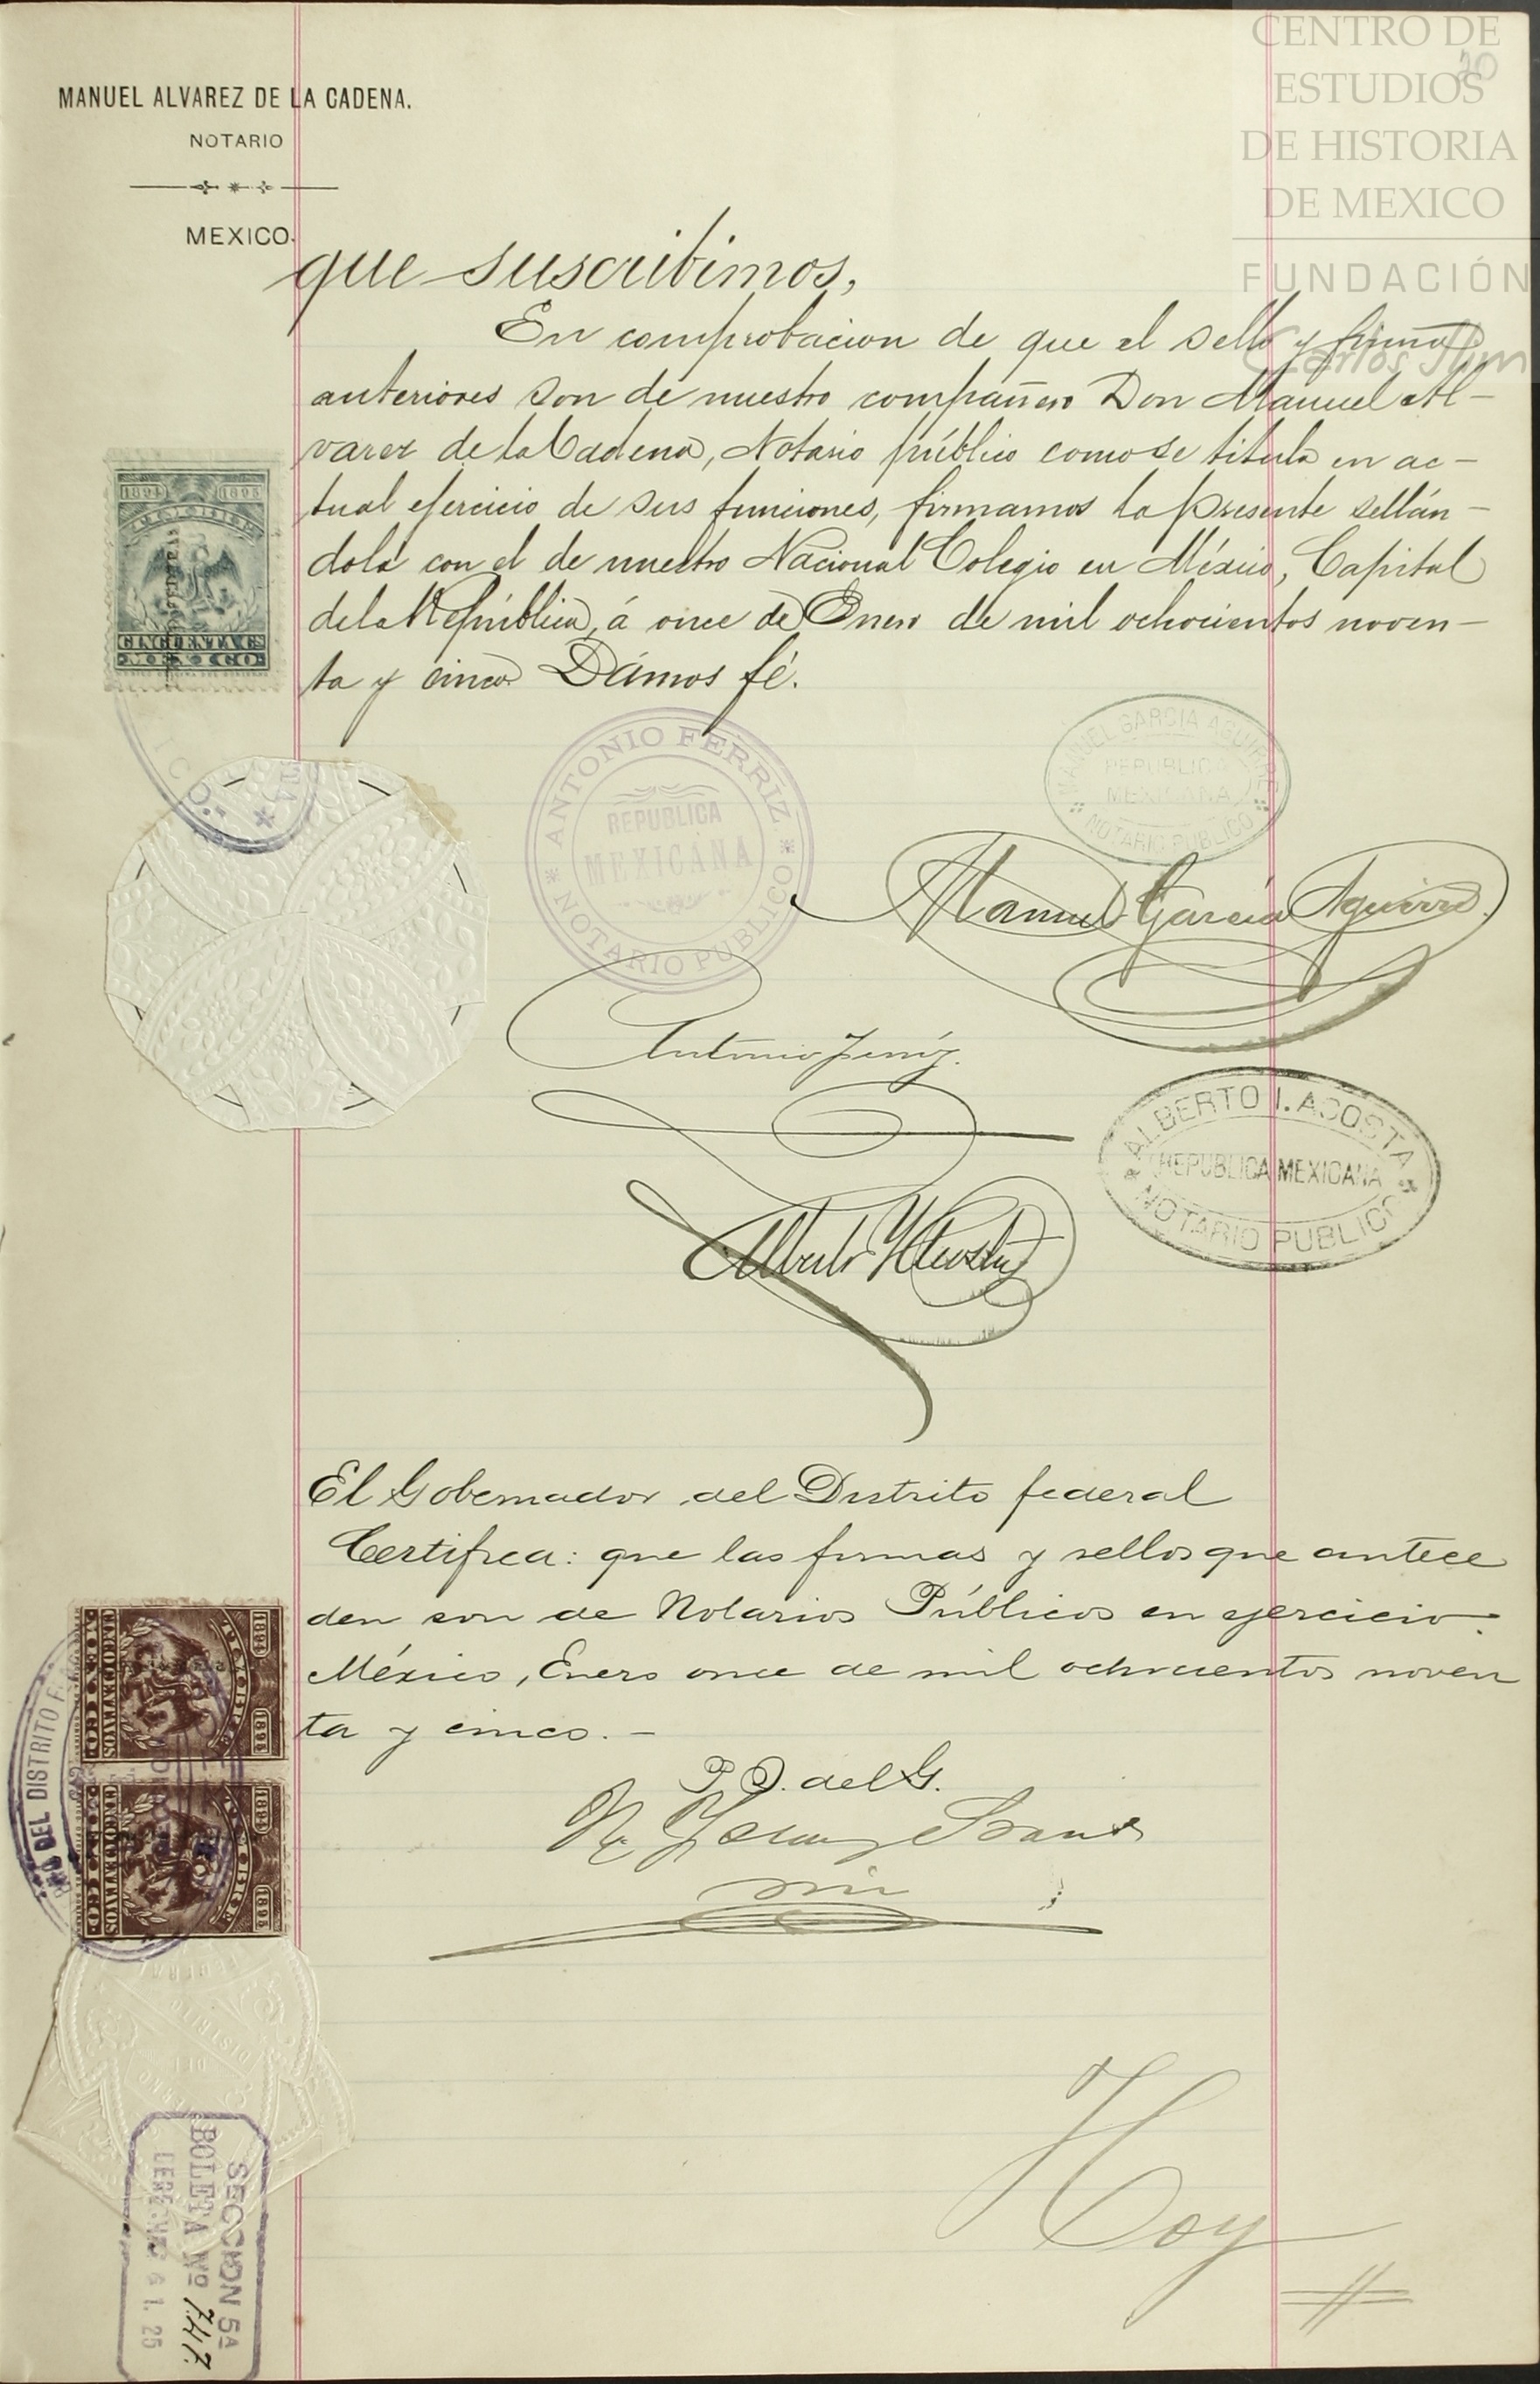 CENTRO DE
ESTUDIOS
DE HISTORIA
DE MEXICO
FUNDACIÓN
Carlos Slim
MANUEL ALVAREZ DE LA CADENA.
NOTARIO
MEXICO.
que suscribimos,
En comprobacion de que el sello y firma
anteriores son de nuestro compañero Don Manuel Al-
varez de la Cadena, Notario público como se titula en ac-
tual ejercicio de sus funciones, firmamos la presente sellán-
dola con el de nuestro Nacional Colegio en México, Capital
de la República, á once de Enero de mil ochocientos noven-
ta y cinco. Damos fé.
1894 1895
CINCUENTA CS
MEXICO
ANTONIO FERRIZ
REPUBLICA
MEXICANA
NOTARIO PUBLICO
MANUEL GARCIA AGUIRRE
REPUBLICA
MEXICANA
NOTARIO PUBLICO
Manuel García Aguirre.
Antonio Ferriz.
ALBERTO I. ACOSTA
REPUBLICA MEXICANA
NOTARIO PUBLICO
El Gobernador del Distrito federal
Certifica: que las firmas y sellos que antece
den son de Notarios Públicos en ejercicio.
México, Enero once de mil ochocientos noven
ta y cinco. -
P. O. del G.
srio
1894 1895
MEXICO
1894 1895
MEXICO
DEL DISTRITO
DISTRITO
DEL
FEDERAL
SECCION 5A
BOLETA Nº 747.
Hoy